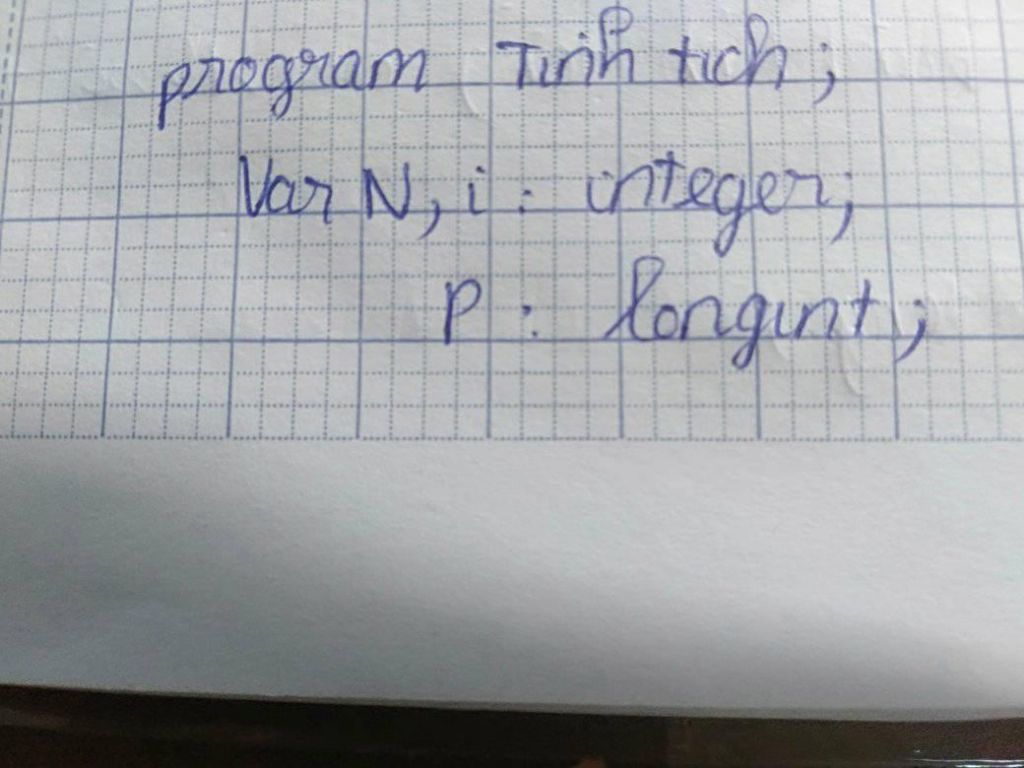 program Tinh tich;
Var N, i : integer;
P : longint;